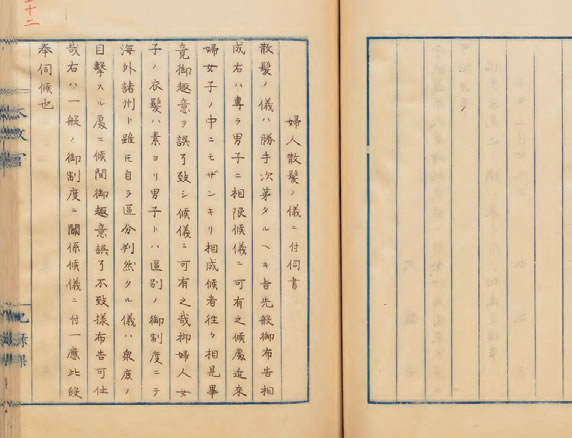 婦人散髪ノ儀ニ付伺書
散髪ノ儀ハ勝手次第タルヘキ旨先般御布告相
成右ハ専ラ男子ニ相限候儀ニ可有之候處近来
婦女子ノ中ニモザンキリ相成候者徃々相見畢
竟御趣意ヲ誤了致シ候儀ニ可有之哉抑婦人女
子ノ衣髪ハ素ヨリ男子トハ區別ノ御制度ニテ
海外諸州ト雖モ自ラ區分判然タル儀ハ衆庶ノ
目擊スル處ニ候間御趣意誤了不致様布告可仕
哉右ハ一般ノ御制度ニ關係候儀ニ付一應此段
奉伺候也